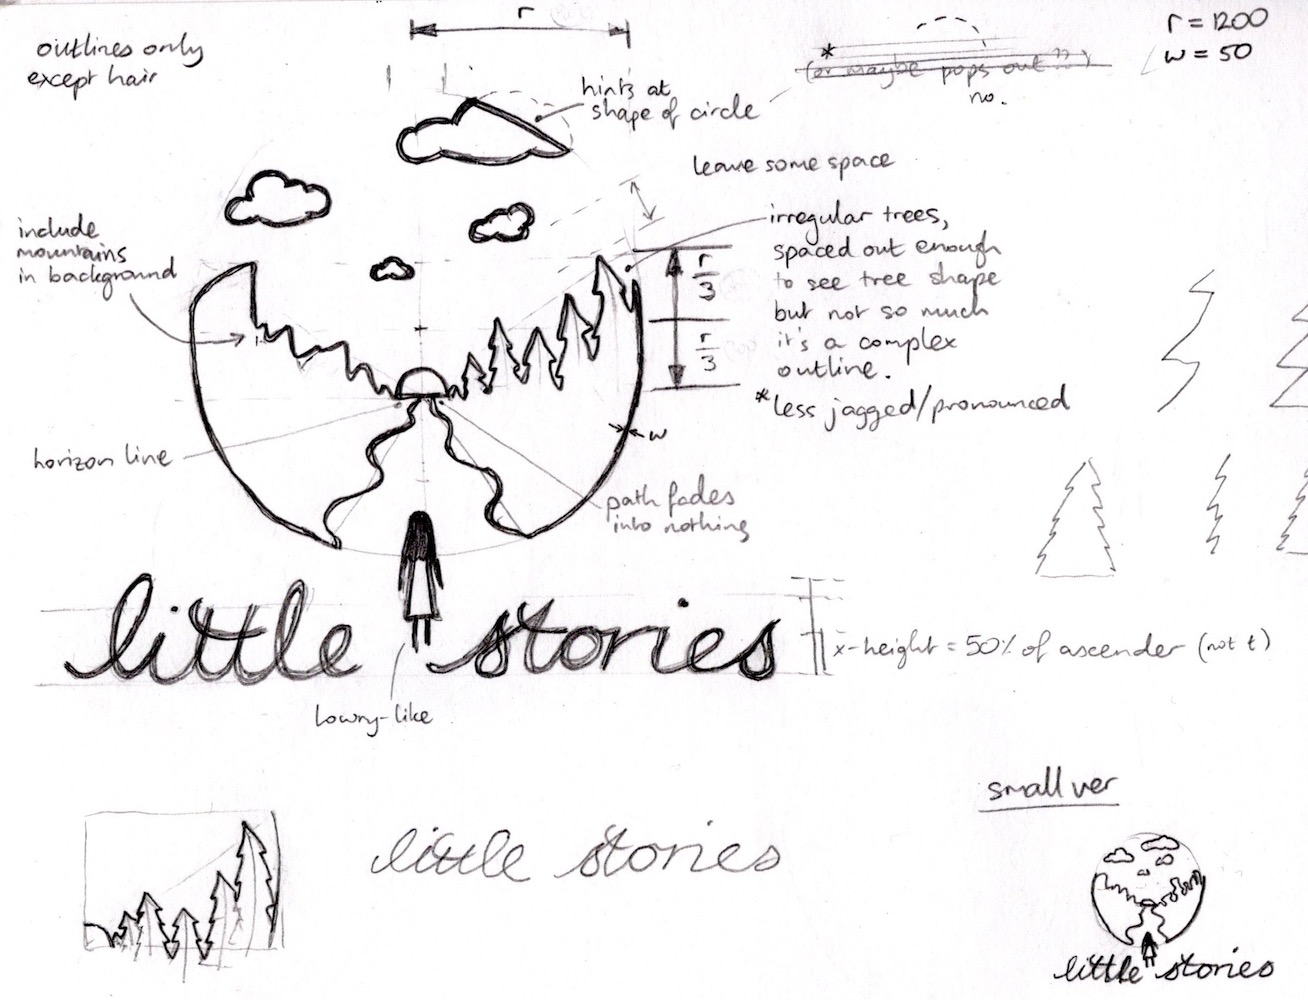 outlines only
except hair
r
*
(or maybe pops out ??)
no.
r = 1200
w = 50
hints at
shape of circle
leave some space
include
mountains
in background
irregular trees,
spaced out enough
to see tree shape
but not so much
it's a complex
outline.
*less jagged/pronounced
r
3
r
3
w
horizon line
path fades
into nothing
little stories
x-height = 50% of ascender (not t)
lowry-like
small ver
little stories
little stories